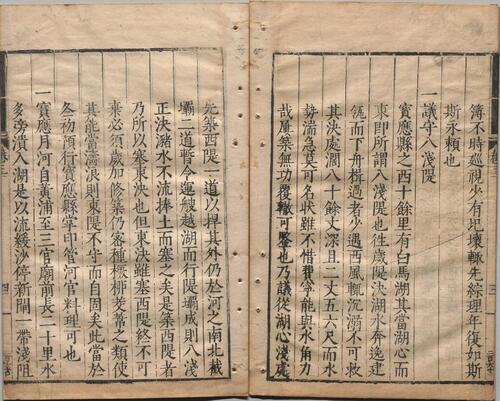 簿不時巡視少有圮壞輒先綜理年復如斯
斯永賴也
一議守八淺隄
寳應縣之西十餘里有白馬湖其當湖心而
東即所謂八淺隄也徃歲隄決湖水奔逸建
瓴而下舟楫過者少遇西風輒沉溺不可救
其決處濶八十餘丈深且二丈五六尺而水
勢湍急莫可名狀雖不惜費寧能與水角力
哉屢築無功覆轍可鑒也乃議從湖心淺處
先築西隄一道以捍其外仍於河之南北截
壩二道暫令運艘越湖而行隄壩成則八淺
正決潴水不流捧土而塞之矣是築西隄者
乃所以塞東決也但東決雖塞西隄終不可
棄必須歲加修築仍畨種橛柳茭蓄之類使
其能當濤浪則東隄不守而自固矣此當於
冬初預行寳應縣掌印管河官料理可也
一寳應月河自黃浦至三官廟前長二十里水
多旁潰入湖是以流緩沙停新閘一帶淺阻
卷三
四